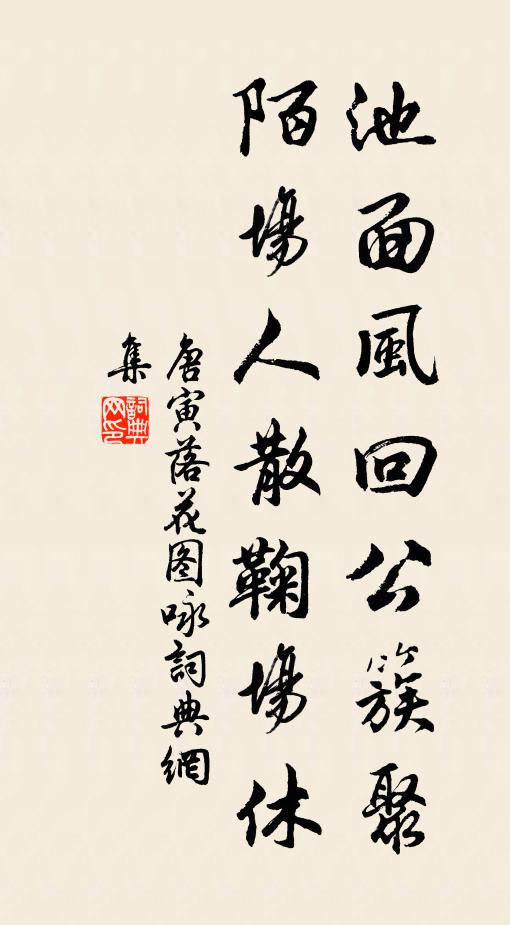 池面風回公簇聚
陌場人散鞠場休
唐寅落花图咏詞典網
集
詞典網印